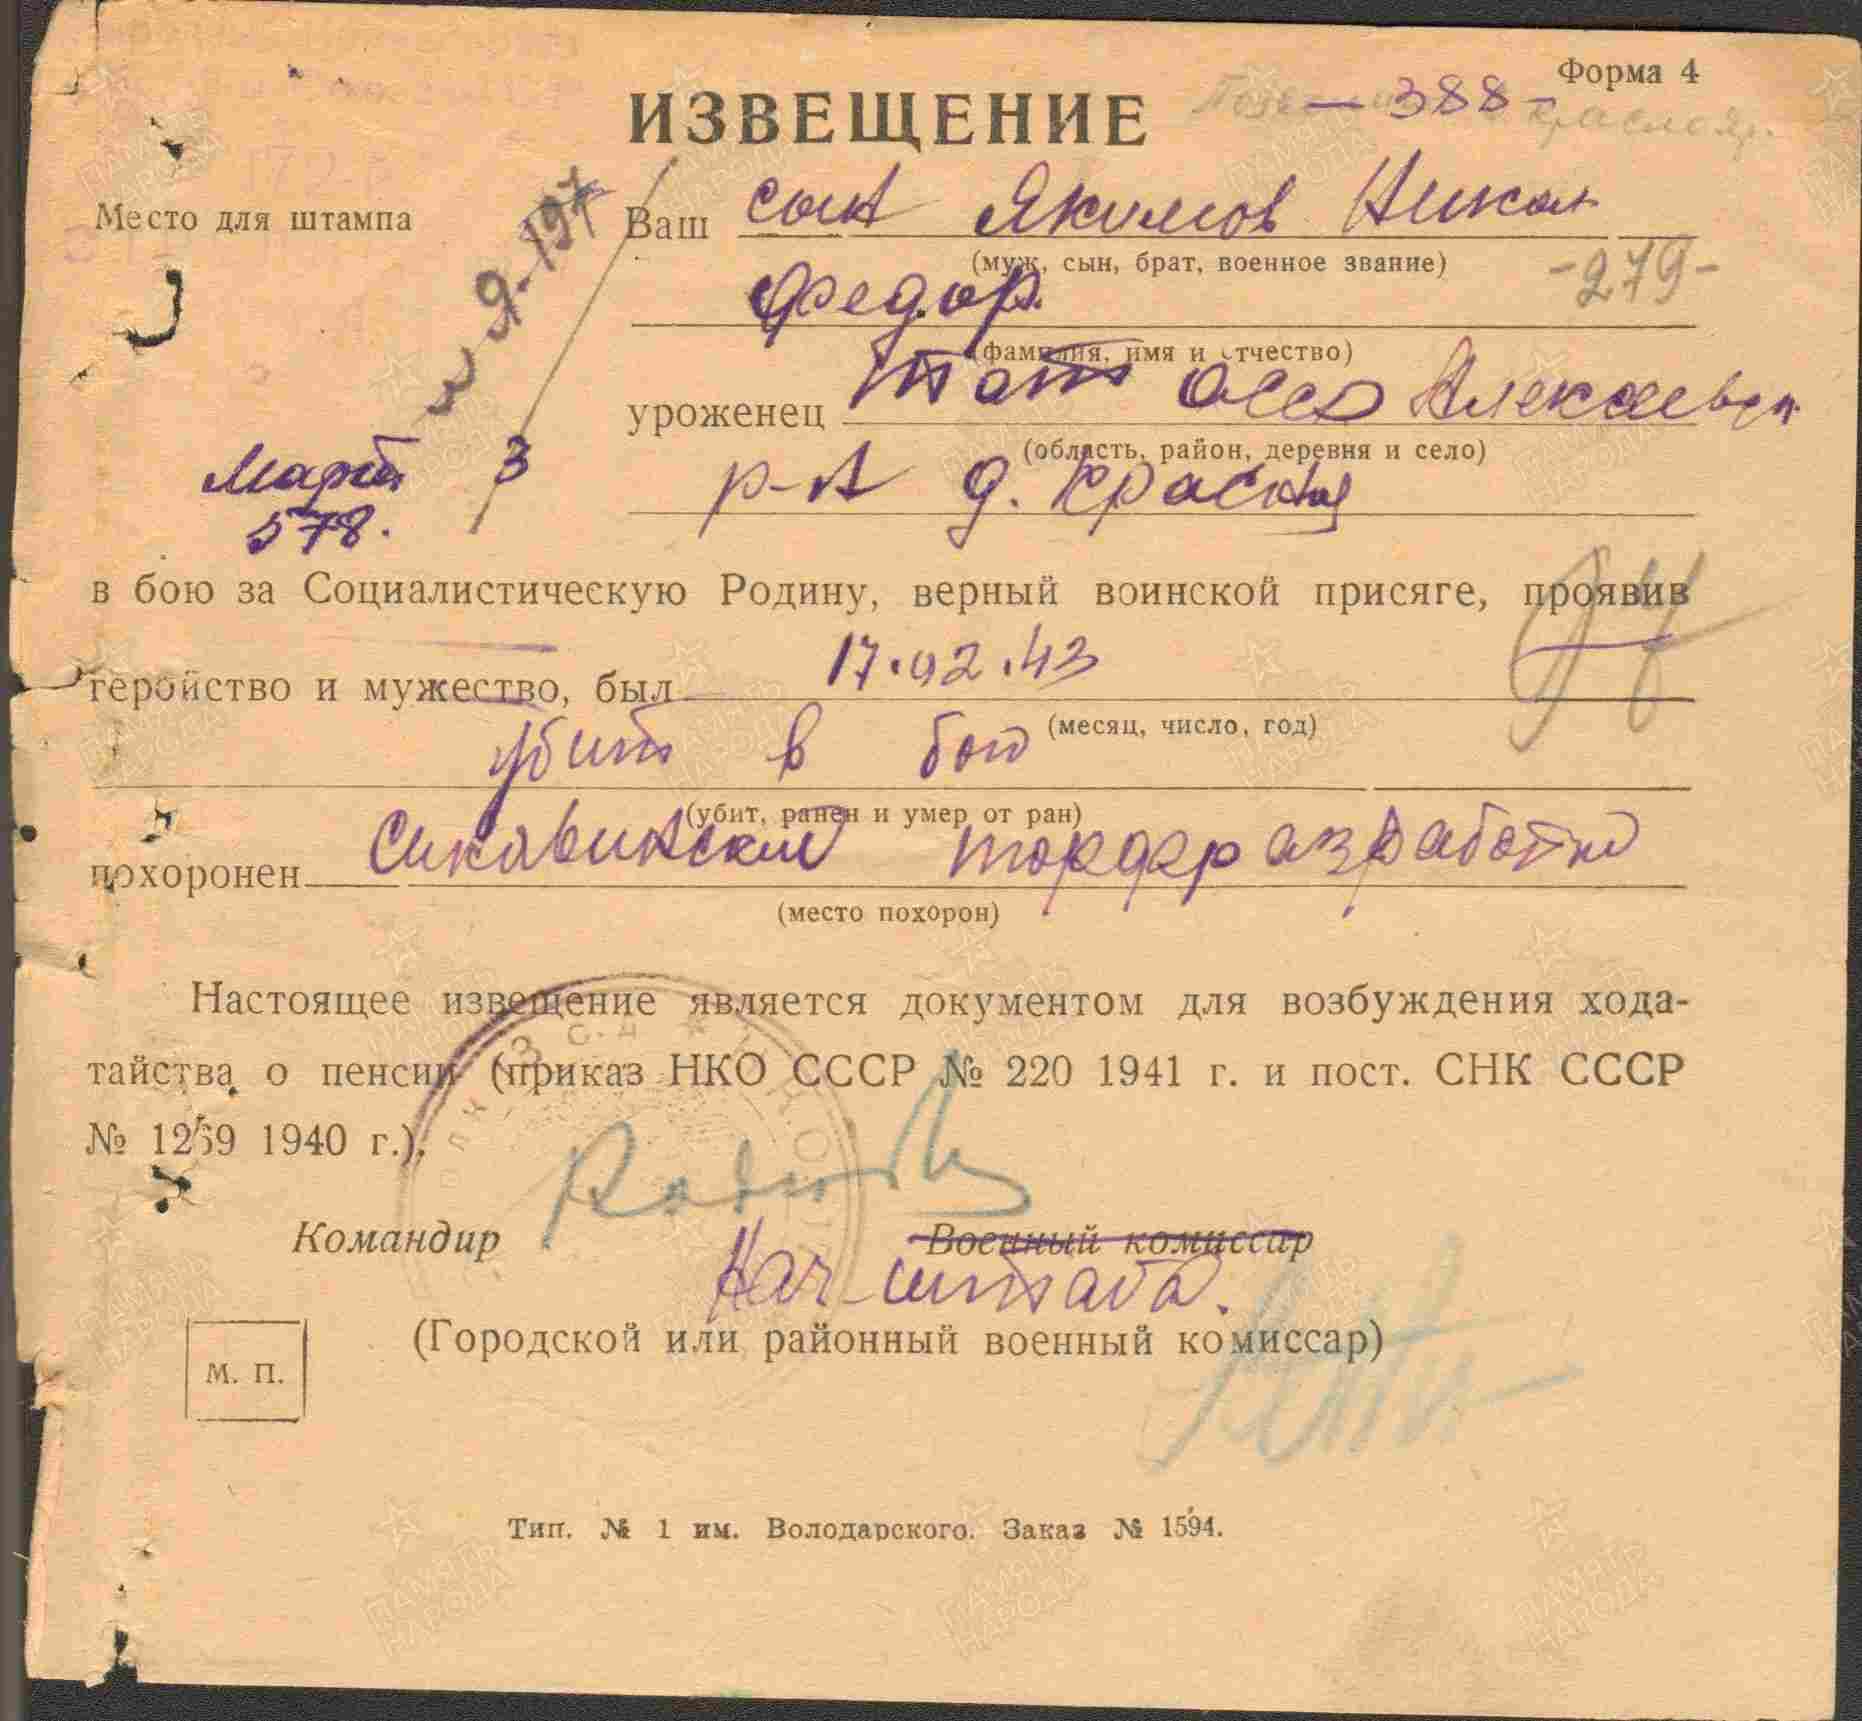 Форма 4
- 388 -
ИЗВЕЩЕНИЕ
Место для штампа
Ваш сын Якимов Никол
(муж, сын, брат, военное звание)
-279-
Федор.
(фамилия, имя и отчество)
уроженец Тат Асср Алексеевск
(область, район, деревня и село)
Март 3
578.
р-н д.
в бою за Социалистическую Родину, верный воинской присяге, проявив
геройство и мужество, был 17.02.43
(месяц, число, год)
убит в бою
(убит, ранен и умер от ран)
похоронен Синявинские торфоразработки
(место похорон)
Настоящее извещение является документом для возбуждения хода-
тайства о пенсии (приказ НКО СССР № 220 1941 г. и пост. СНК СССР
№ 1269 1940 г.).
Командир
Военный комиссар
Нач-штаба.
(Городской или районный военный комиссар)
М. П.
Тип. № 1 им. Володарского. Заказ № 1594.
ПАМЯТЬ НАРОДА